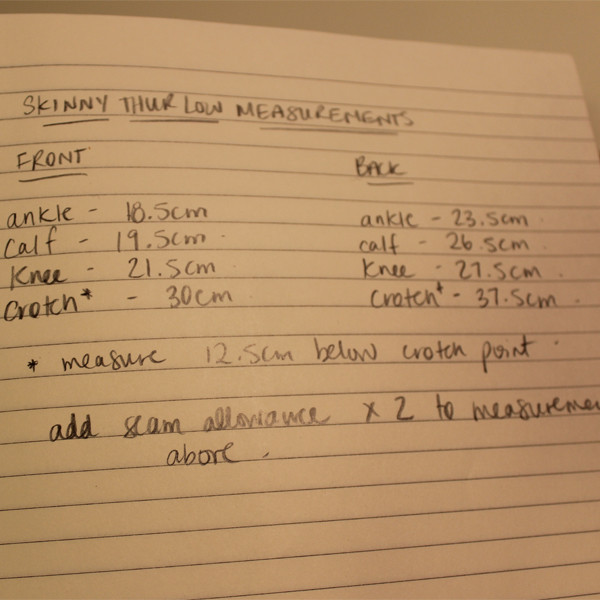 SKINNY THURLOW MEASUREMENTS
FRONT BACK
ankle - 18.5cm ankle - 23.5cm
calf - 19.5cm calf - 26.5cm
Knee - 21.5cm Knee - 27.5cm
Crotch* - 30cm Crotch* - 37.5cm
* measure 12.5cm below crotch point
add seam allowance x 2 to measuremen
above.